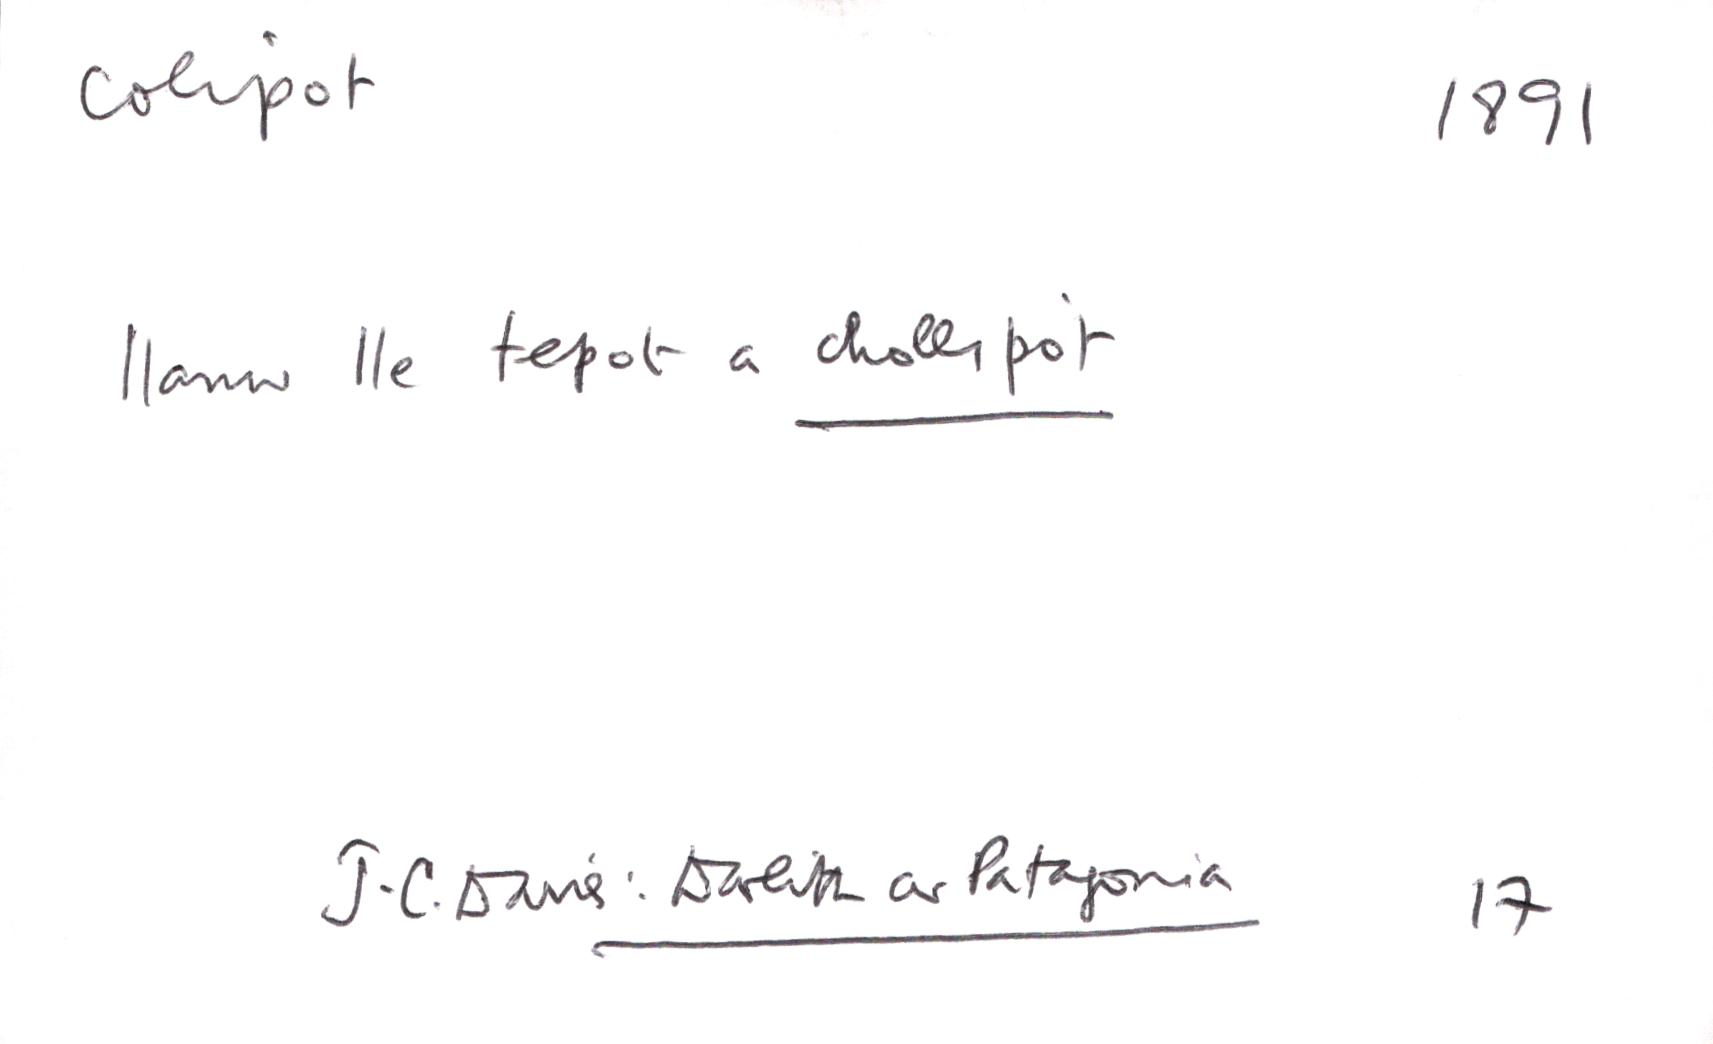 colipot 1891
llanw lle tepot a chollipot
J. C. Davies: Darlith ar Patagonia 17